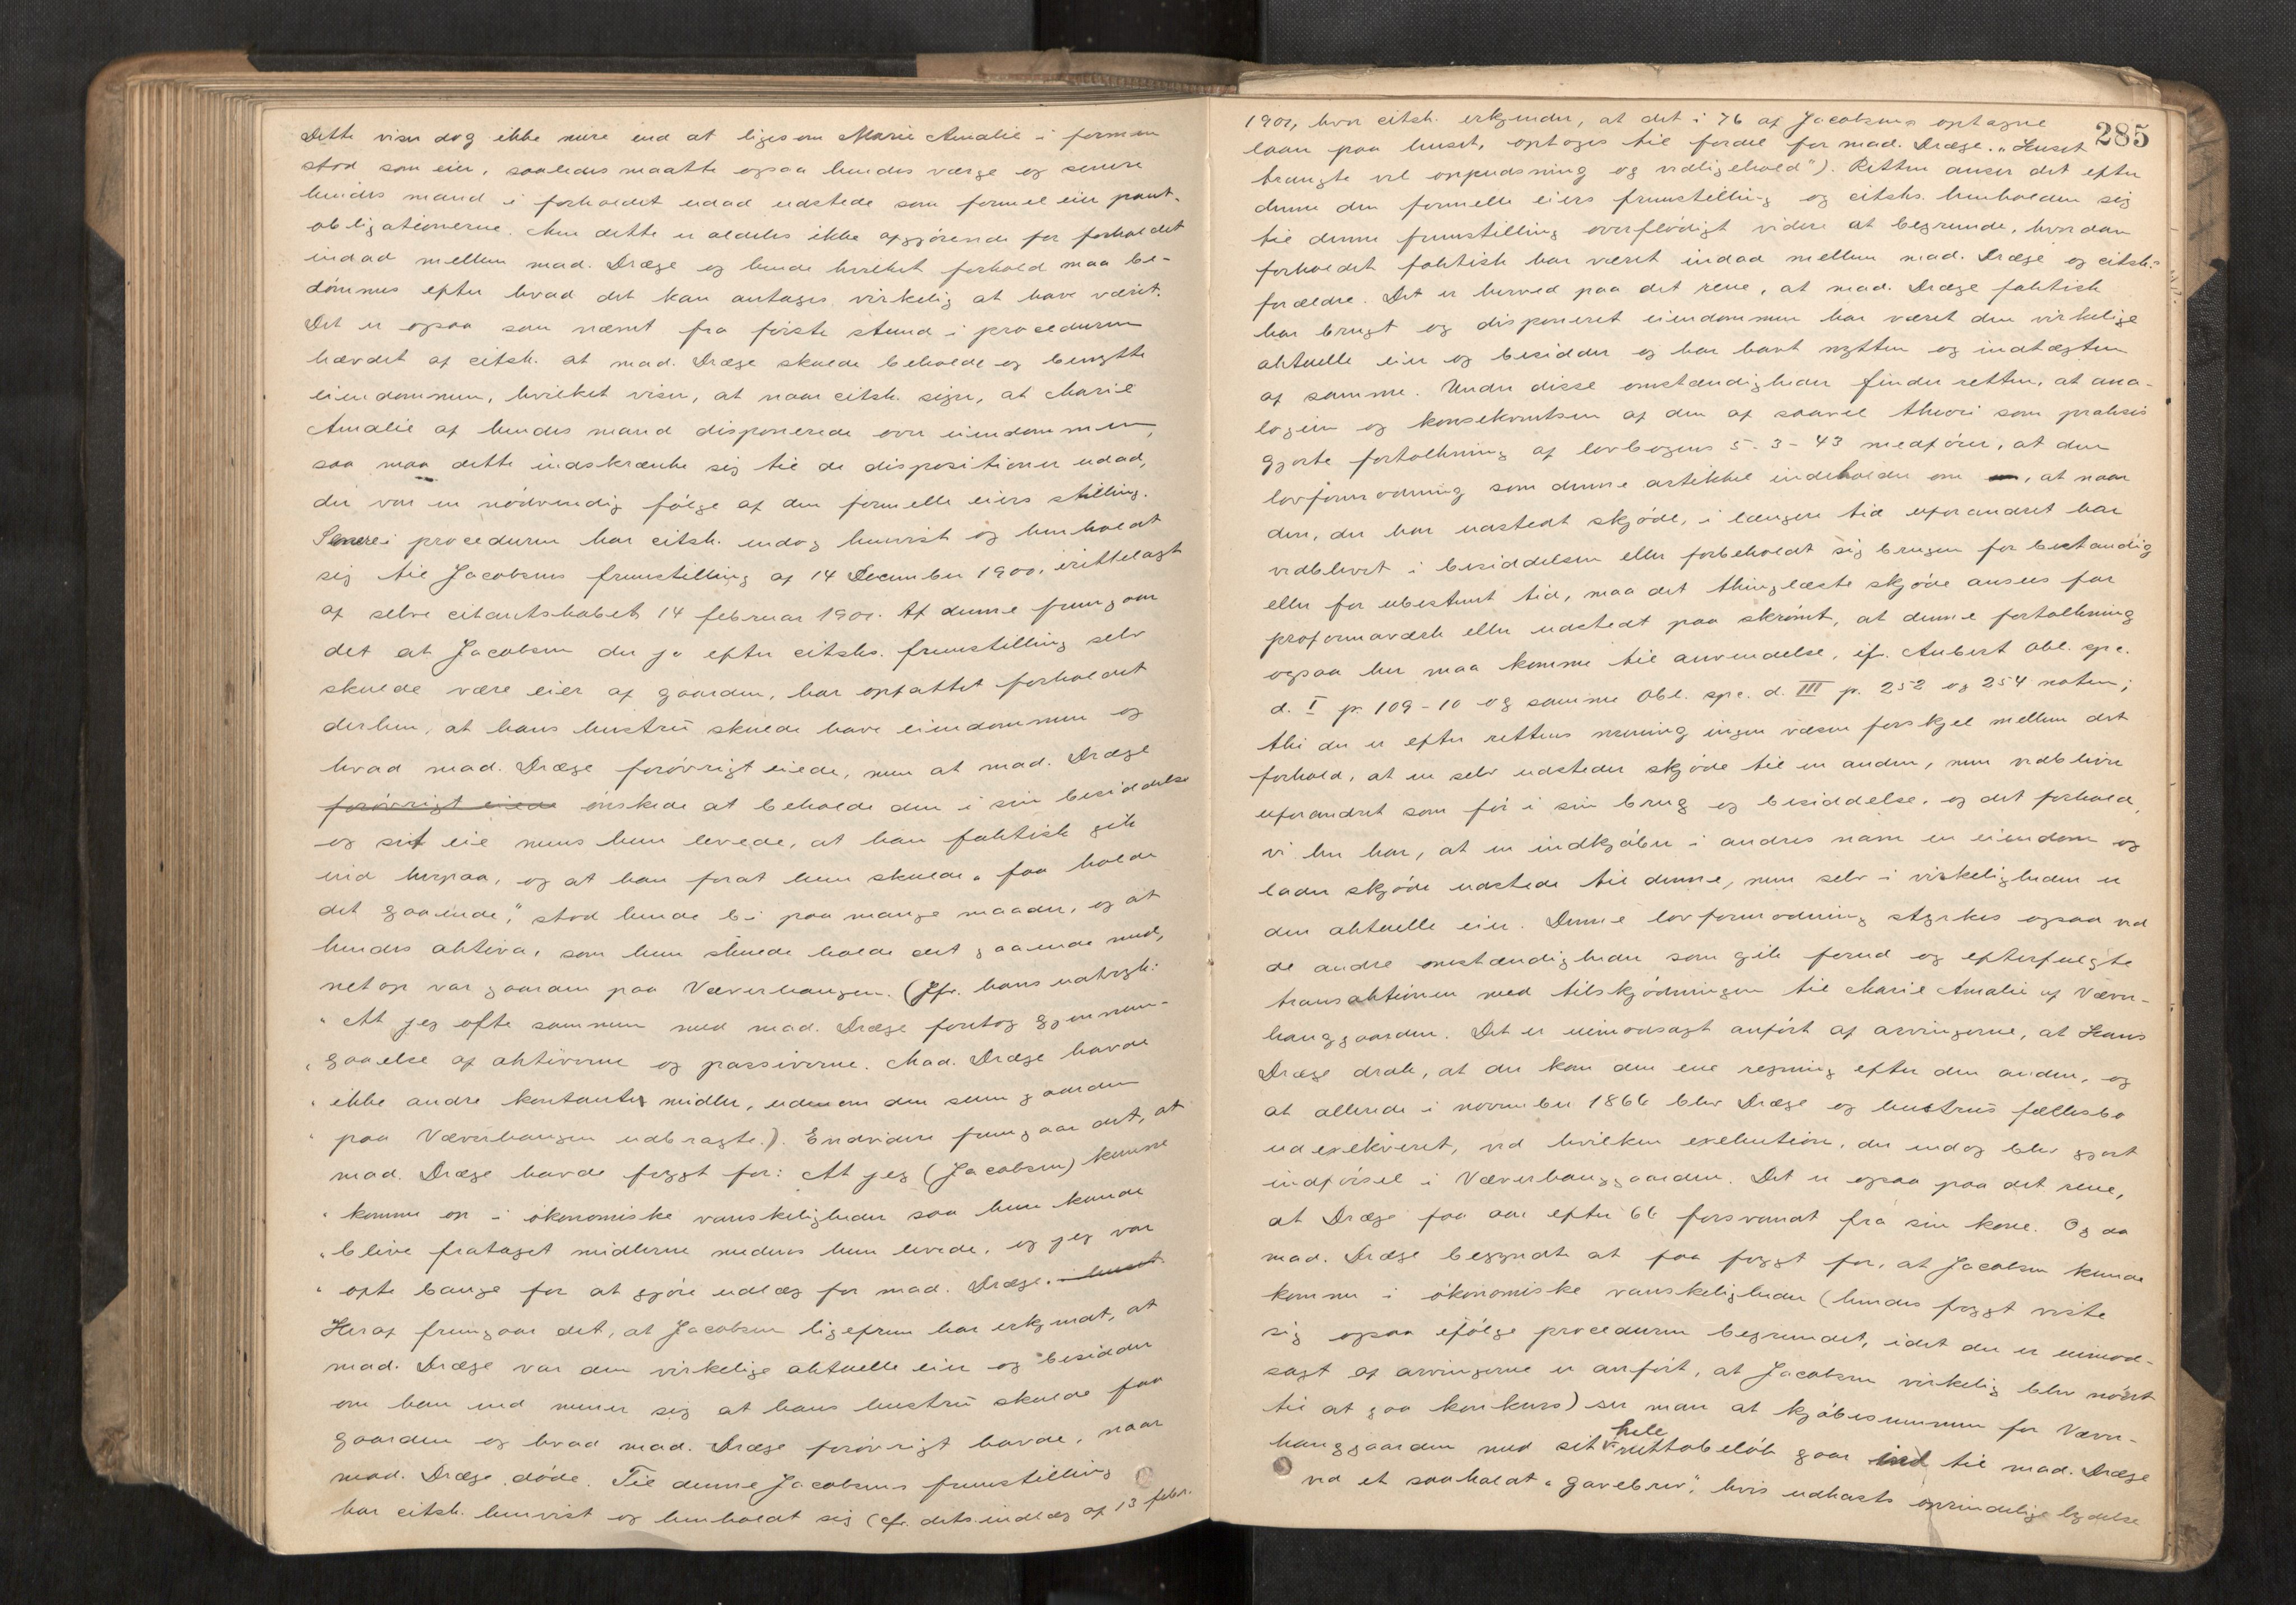 Dette viser dog ikke mere end at ligesom Marie Amalie i formen
stod som eier, saaledes maatte ogsaa hendes værge og senere
hendes mand i forholdet udad udstede som formel eier pant-
obligationerne. Men dette er aldeles ikke afgjörende for forholdet
indad mellem mad. Dræge og hende hvilket forhold maa be-
dömmes efter hvad det kan antages virkelig at have været.
Det er ogsaa som nævnt fra förste stund i proceduren
hævdet af citsk. at mad. Dræge skulde beholde og benytte
eiendommen, hvilket viser, at naar citsk. siger, at Marie
Amalie af hendes mand disponerede over eiendommen,
saa maa dette indskrænke sig til de dispositioner udad,
der var en nödvendig fölge af den formelle eiers stilling.
Senere i proceduren har citsk. endog henvist og henholdt
sig til Jacobsens fremstilling af 14 December 1900, irettelagt
af selve citantskabet 14 februar 1901. Af denne fremgaar
det at Jacobsen der jo efter citsks. fremstilling selv
skulde være eier af gaarden, har opfattet forholdet
derhen, at hans hustru skulde have eiendommen og
hvad mad. Dræge forövrigt eiede, men at mad. Dræge
forövrigt eiede önskede at beholde den i sin besiddelse
og sit eie mens hun levede, at han faktisk gik
ind herpaa, og at han forat hun skulde "faa holde
det gaaende", stod hende bi paa mange maader, og at
hendes aktiva, som hun skulde holde det gaaende med,
netop var gaarden paa Væverhaugen. (Jfr. hans udtryk:
"At jeg ofte sammen med mad. Dræge foretog gjennem-
"gaaelse af aktiverne og passiverne. Mad. Dræge havde
"ikke andre kontanter midler, udenom den sum gaarden
"paa Væverhaugen udbragte.). Endvidere fremgaar det, at
mad. Dræge havde frygt for: At jeg (Jacobsen) kunne
"komme op i ökonomiske vanskeligheder saa hun kunde
"blive frataget midlerne medens hun levede, og jeg var
"ofte bange for at gjöre udlæg for mad. Dræge. huset
Heraf fremgaar det, at Jacobsen ligefrem har erkjendt, at
mad. Dræge var den virkelige aktuelle eier og besidder
om han end mener sig at hans hustru skulde faa
gaarden og hvad mad. Dræge forövrigt havde, naar
mad. Dræge döde. Til denne Jacobsens fremstilling
har citsk. henvist og henholdt sig (cfr. dets indlæg af 13 febr.
285
1901, hvor citsk. erkjender, at det i 76 af Jacobsen optagne
laan paa huset, optoges til fordel for mad. Dræge. "Huset
trængte vel oppudsning og vedligehold"). Retten anser det efter
denne den formelle eiers fremstilling og citsks. henholden sig
til denne fremstilling overflödigt videre at begrunde, hvordan
forholdet faktisk har været indad mellem mad. Dræge og citsk:s
forældre. Det er herved paa det rene, at mad. Dræge faktisk
har brugt og disponeret eiendommen har været den virkelige
aktuelle eier og besidder og har havt nytten og indtægten
af samme. Under disse omstændigheder finder retten, at ana-
logien og konsekventsen af den af saavel theori som praksis
gjorte fortolkning af lovbogens 5-3-43 medförer, at den
lovformodning som denne artikkel indeholder om, at naar
den, der har udstedt skjöde, i længere tid uforandret har
vedblevet i besiddelsen eller forbeholdt sig brugen for bestandig
eller for ubestemt tid, maa det thinglæste skjöde ansees for
proformaværk eller udstedt paa skrömt, at denne fortolkning
ogsaa her maa komme til anvendelse, jf. Aubert Obl. spc.
d. I p. 109-10 og samme Obl. spc. d. III p. 252 og 254 noten;
thi der er efter rettens mening ingen væsen forskjel mellem det
forhold, at en selv udsteder skjöde til en anden, men vedbliver
uforandret som för i sin brug og besiddelse, og det forhold,
vi her har, at en indkjöber i andres navn en eiendom og
lader skjöde udstede til denne, men selv i virkeligheden er
den aktuelle eier. Denne lovformodning styrkes ogsaa ved
de andre omstændigheder som gik forud og efterfulgte
transaktionen med tilskjödningen til Marie Amalie af Væver-
hauggaarden. Det er uimodsagt anfört af arvingerne, at Hans
Dræge drak, at der kom den ene regning efter den anden, og
at allerede i november 1866 blev Dræge og hustrus fællesbo
udexekveret, ved hvilken exekution, der endog blev gjort
indförsel i Væverhauggaarden. Det er ogsaa paa det rene,
at Dræge faa aar efter 66 forsvandt fra sin kone. Og da
mad. Dræge begyndte at faa frygt for, at Jacobsen kunde
komme i ökonomiske vanskeligheder (hendes frygt viste
sig ogsaa ifölge proceduren begrundet, idet der er uimod-
sagt af arvingerne er anfört, at Jacobsen virkelig blev nödt
til at gaa konkurs) ser man at kjöbesummen for Væver-
hauggaarden med sit hele nettobelöb gaar ind til mad. Dræge
ved et saakaldt "gavebrev", hvis udkasts oprindelige lydelse